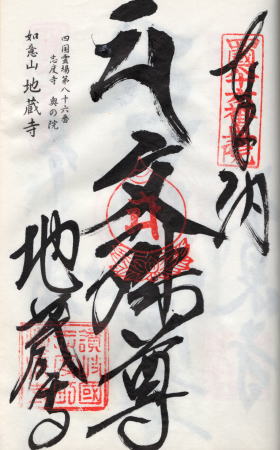 奉納
文殊尊
地蔵寺
四国霊場第八十六番
志度寺 奥の院
如意山 地蔵寺